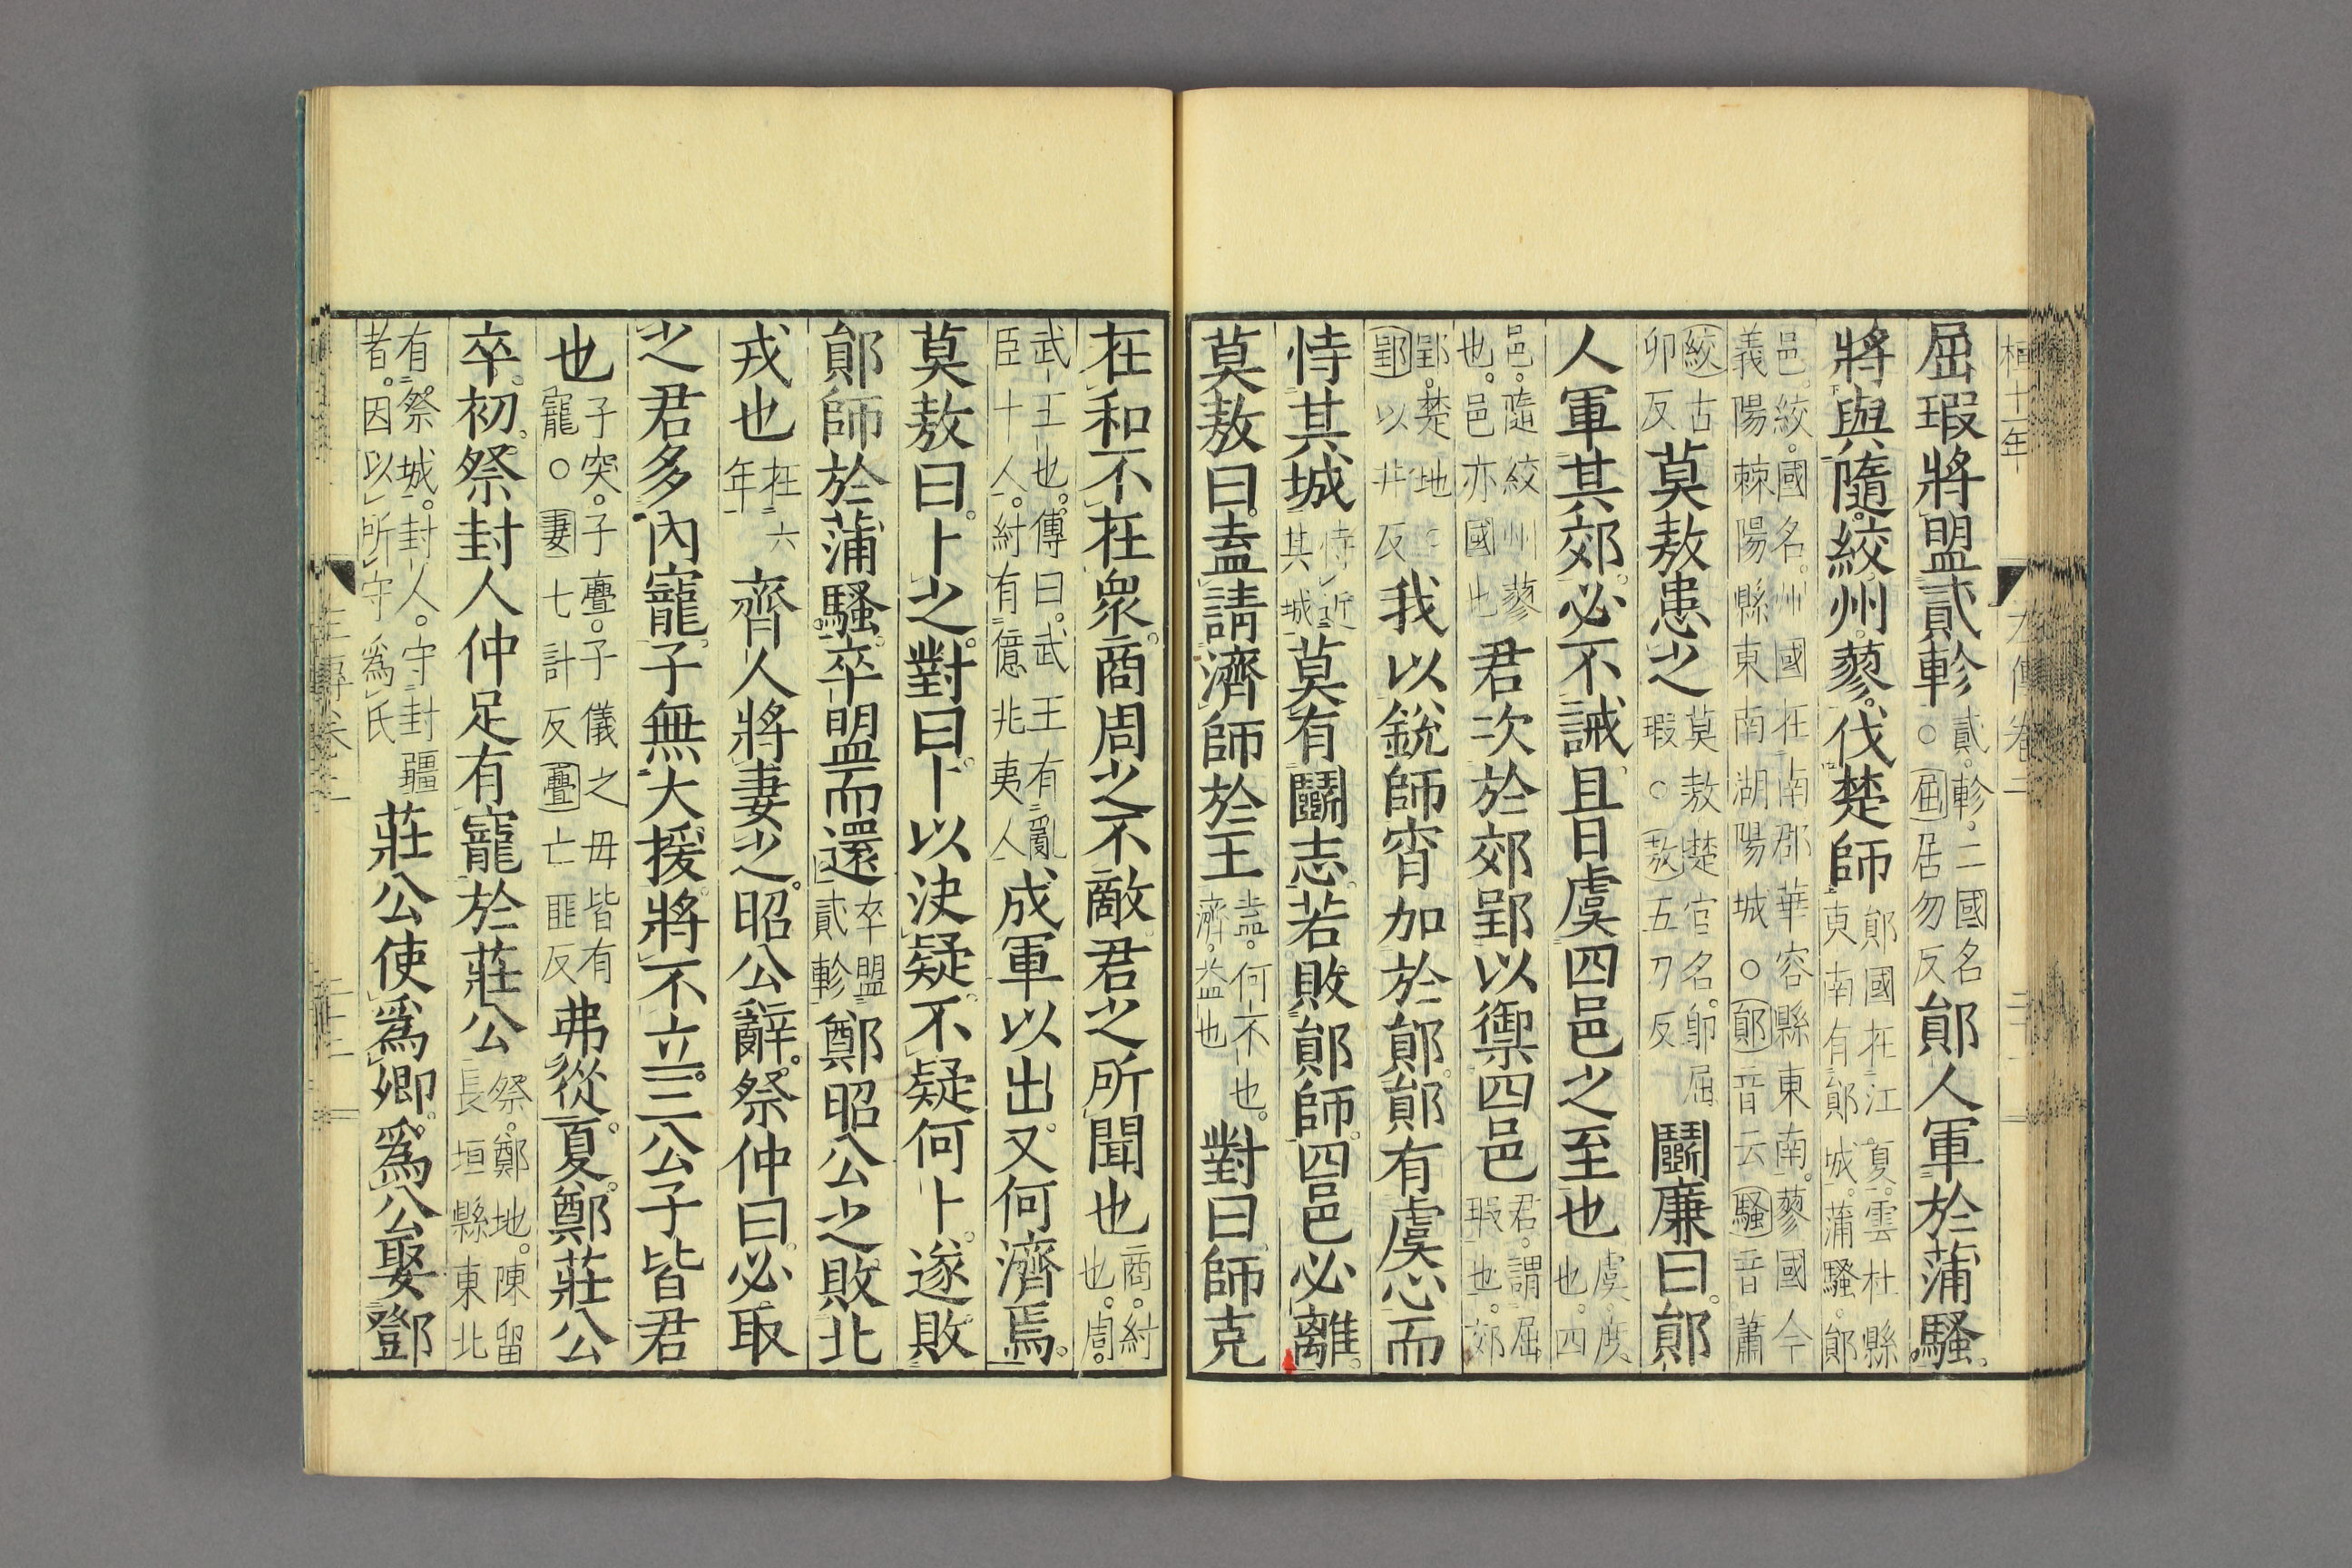 桓十一年
左傳卷二
屈瑕將盟貳軫貳軫二國名○屈居勿反鄖人軍於蒲騷
將與隨絞州蓼伐楚師鄖國在江夏雲杜縣東南有鄖城蒲騷鄖
邑絞國名州國在南郡華容縣東南蓼國今義陽棘陽縣東南湖陽城○鄖音云騷音蕭
絞古卯反莫敖患之莫敖楚官名卽屈瑕○敖五刀反鬭廉曰鄖
人軍其郊必不誡且日虞四邑之至也虞度也四
邑隨絞州蓼也邑亦國也君次於郊郢以禦四邑君謂屈瑕也郊
郢楚地郢以井反我以銳師宵加於鄖鄖有虞心而
恃其城恃近其城莫有鬭志若敗鄖師四邑必離
莫敖曰盍請濟師於王盍何不也濟益也對曰師克
在和不在眾商周之不敵君之所聞也商紂也周
武王也傳曰武王有亂臣十人紂有億兆夷人成軍以出又何濟焉
莫敖曰卜之對曰卜以決疑不疑何卜遂敗
鄖師於蒲騷卒盟而還卒盟貳軫鄭昭公之敗北
戎也在六年齊人將妻之昭公辭祭仲曰必取
之君多內寵子無大援將不立三公子皆君
也子突子亹子儀之毋皆有寵○妻七計反亹亡匪反弗從夏鄭莊公
卒初祭封人仲足有寵於莊公祭鄭地陳留長垣縣東北
有祭城封人守封疆者因以所守爲氏莊公使爲卿爲公娶鄧